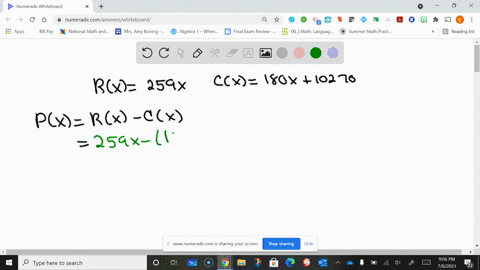 Numerade Whiteboard
numerade.com/answers/whiteboard/
Apps
Bill Pay
National Math and...
Mrs. Amy Koning -...
Algebra 1 – Whenev...
Final Exam Review -...
IXL | Math, Language...
Summer Math Practi...
Reading list
R(x) = 259x C(x) = 180x + 10270
P(x) = R(x) - C(x)
= 259x - (1
www.numerade.com is sharing your screen.
Stop sharing
Hide
Type here to search
9:06 PM
7/6/2021